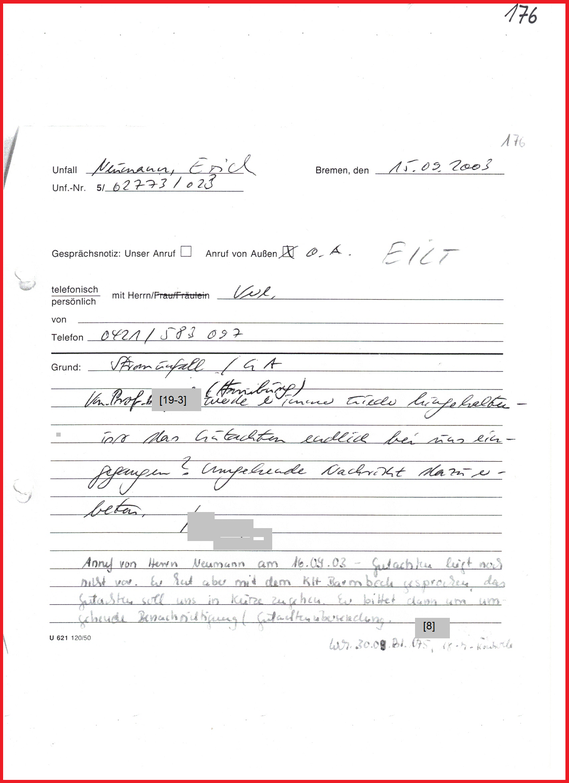 176
176
Unfall Neumann, Erich Bremen, den 15.09.2003
Unf.-Nr. 5/ 02773/023
Gesprächsnotiz: Unser Anruf ☐ Anruf von Außen ☒ o. A. EILT
telefonisch
persönlich
mit Herrn/Frau/Fräulein Verl.
von
Telefon 0421/583 097
Grund: Stromunfall / GA
(Hamburg)
Von Prof. [19-3] werde er immer wieder hingehalten -
ist das Gutachten endlich bei uns ein-
gegangen? Umgehende Nachricht dazu er-
beten.
Anruf von Herrn Neumann am 16.09.03 - Gutachten liegt noch
nicht vor. Er hat aber mit dem KH Barmbeck gesprochen, das
Gutachten soll uns in Kürze zugehen. Er bittet dann um um-
gehende Benachrichtigung/ Gutachtenübersendung.
[8]
U 621 120/50
30.09. Bl. 175,